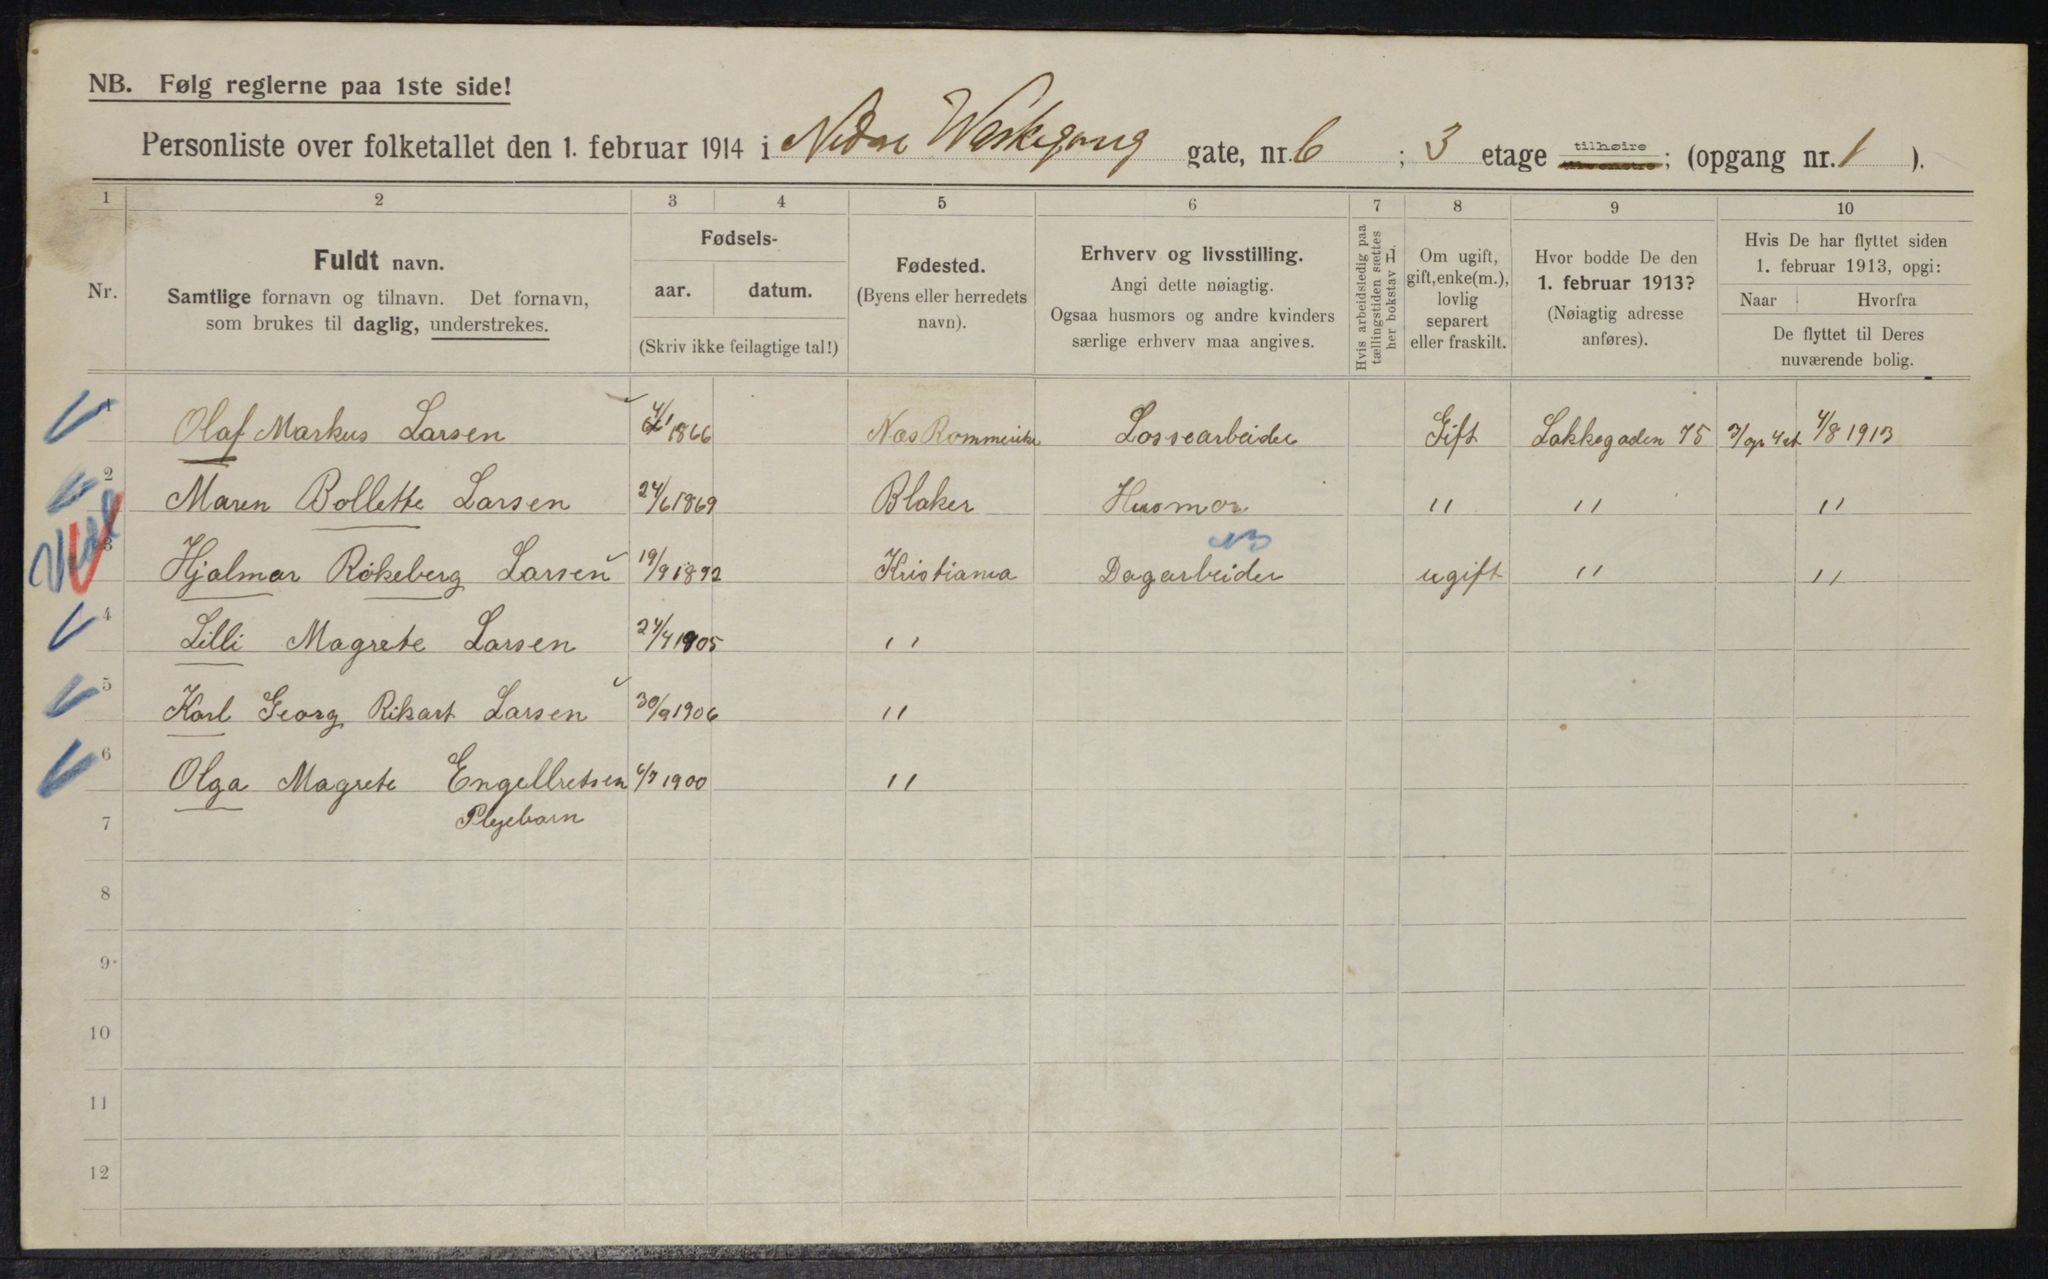 NB. Følg reglerne paa 1ste side!
Personliste over folketallet den 1. februar 1914 i Nedre Waskegang gate, nr. 6 ; 3 etage tilhøire ; (opgang nr. 1 ).
1 2 3 4 5 6 7 8 9 10
Nr.
Fuldt navn.
Samtlige fornavn og tilnavn. Det fornavn,
som brukes til daglig, understrekes.
Fødsels-
aar. datum.
(Skriv ikke feilagtige tal!)
Fødested.
(Byens eller herredets
navn).
Erhverv og livsstilling.
Angi dette nøiagtig.
Ogsaa husmors og andre kvinders
særlige erhverv maa angives.
Hvis arbeidsledig paa
tællingstiden sættes
her bokstav L.
Om ugift,
gift, enke(m.),
lovlig
separert
eller fraskilt.
Hvor bodde De den
1. februar 1913?
(Nøiagtig adresse
anføres).
Hvis De har flyttet siden
1. februar 1913, opgi:
Naar Hvorfra
De flyttet til Deres
nuværende bolig.
1 Olaf Markus Larsen 1866 Næs Rommerike Lossearbeider Gift Lakkegaden 75 3/op 4 et 4/8 1913
2 Maren Bollette Larsen 24/6 1869 Blaker Husmor " " "
3 Hjalmar Rökeberg Larsen 19/9 1892 Kristiania Dagarbeider ugift " "
4 Lilli Magrete Larsen 24/4 1905 "
5 Karl Georg Rikart Larsen 30/9 1906 "
6 Olga Magrete Engelbretsen 6/7 1900 "
7 Plejebarn
8
9
10
11
12